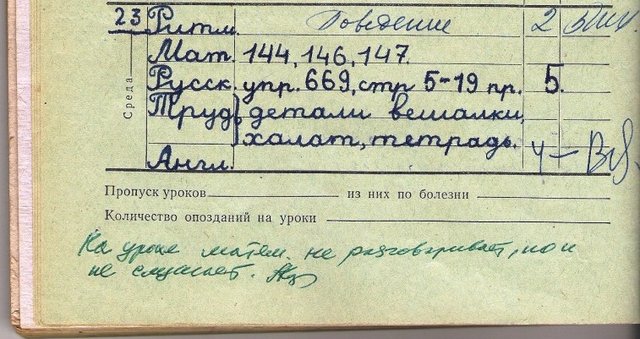 23 Ритм. Поведение 2
Мат. 144, 146, 147.
Среда
Русск. упр. 669, стр 5-19 пр. 5.
Труд} детали вешалки,
халат, тетрадь. 4-
Англ.
Пропуск уроков из них по болезни
Количество опозданий на уроки
На уроке матем. не разговаривает, но и
не слушает.